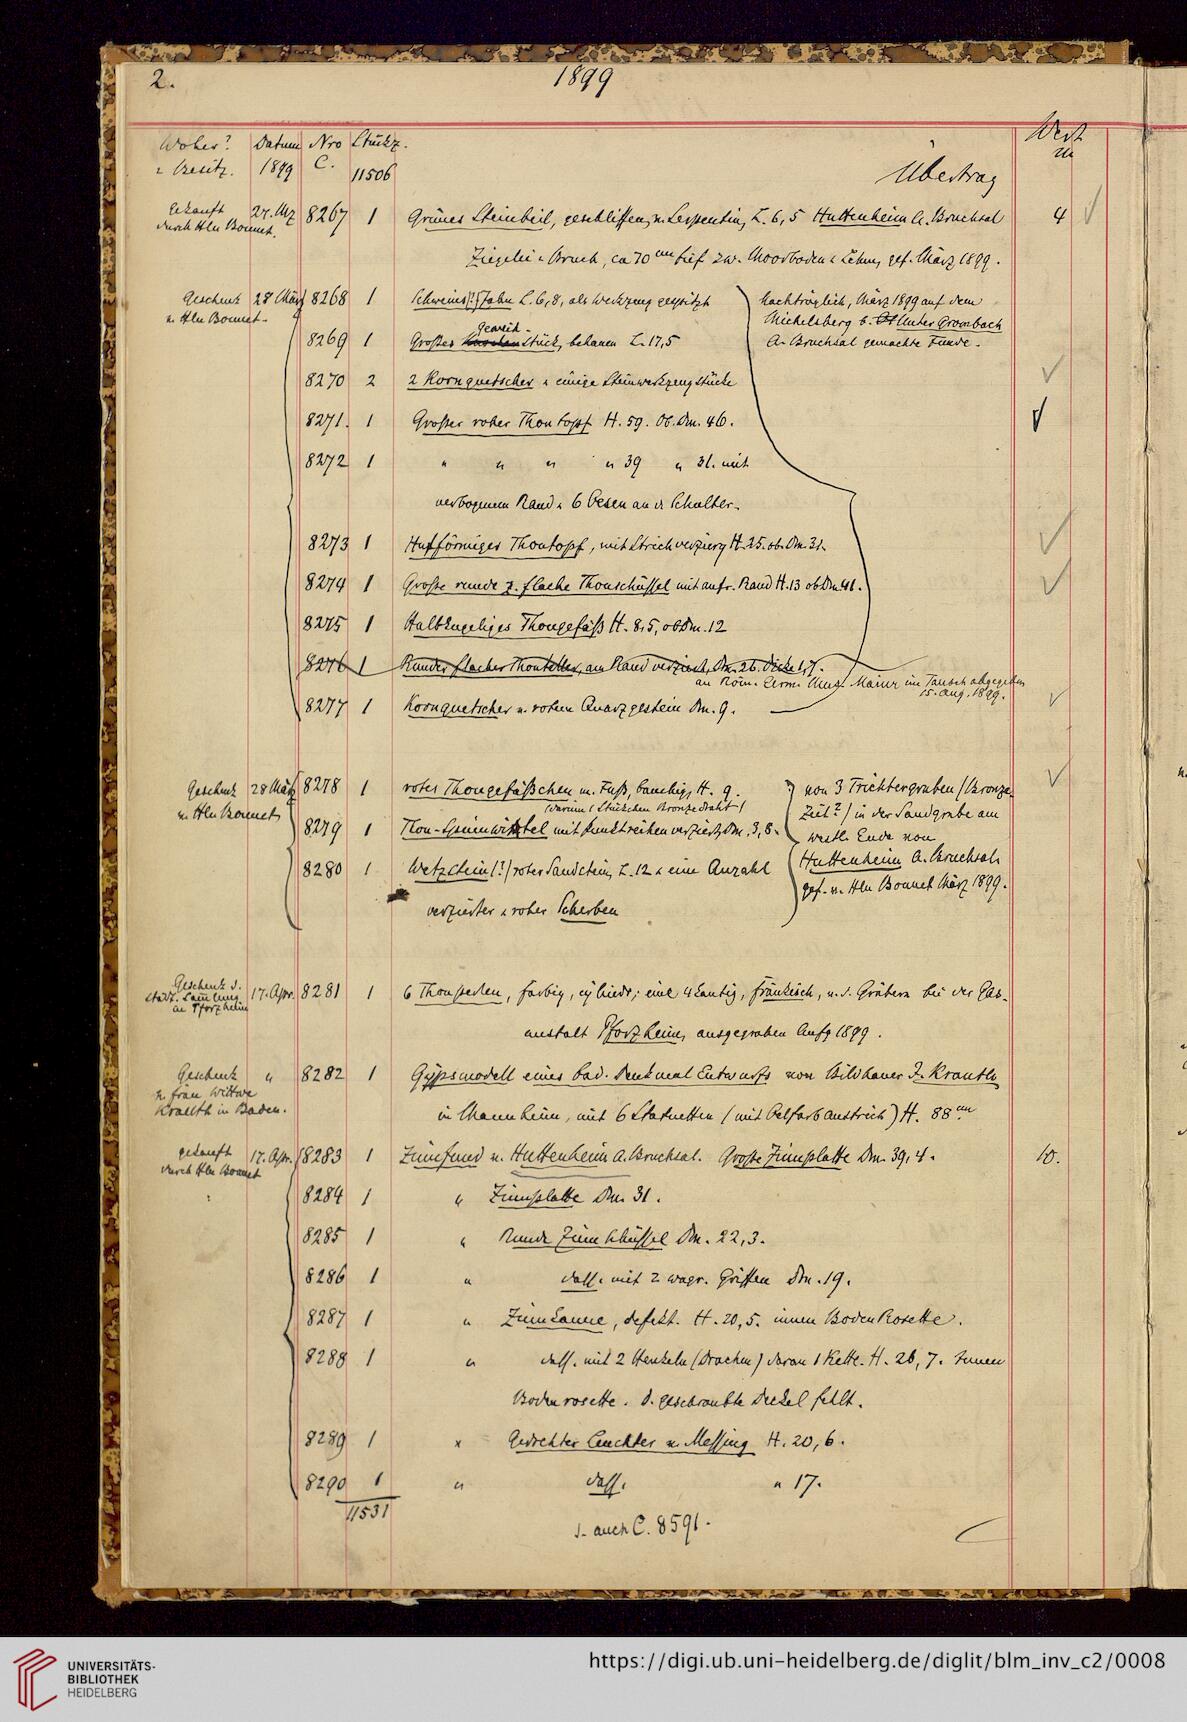 2. 1899
Woher? Datum Nro Stückz. Wert
u. Besitz. 1899 C. 11506 Übertrag M
gekauft durch Hln Bonnet. 27. Mz 8267 1 Grünes Steinbeil, geschliffen, v. Serpentin, L. 6,5 Huttenheim A. Bruchsal 4
Ziegelei-Bruch, ca 70 cm tief zw. Moorboden u. Lehm, gef. März 1899.
Geschenk v. Hln Bonnet. 28 März 8268 1 Schweins(?)zahn L. 6,8, als Werkzeug gespitzt
8269 1 Großes Geweihstück, behauen L. 17,5
8270 2 2 Kornquetscher u. einige Steinwerkzeugstücke
Nachträglich, März 1899 auf dem
Michelsberg b. Unter Grombach
A. Bruchsal gemachte Funde.
8271. 1 Großer roher Thontopf H. 59. Ob. Dm. 46.
8272 1 " " " " 39 " 31. mit
verbogenem Rand u. 6 Oesen an d. Schulter.
8273 1 Hutförmiger Thontopf, mit Strichverzierg H. 25. ob. Dm. 21.
8274 1 Große runde z. flache Thonschüssel mit aufr. Rand H. 13 ob Dm. 41.
8275 1 Halbkugeliges Thongefäß H. 8,5, ob Dm. 12
8276 1 Runder flacher Thonteller, am Rand verziert, Dm. 26. Dicke 1,7.
an Röm. Germ. Mus. Mainz im Tausch abgegeben
15. Aug. 1899.
8277 1 Kornquetscher v. rotem Quarzgestein Dm. 9.
Geschenk v. Hln Bonnet 28 März 8278 1 rotes Thongefäßchen m. Fuß, bauchig, H. 9.
(darin 1 Stückchen Bronzedraht)
8279 1 Thon-Spinnwirtel mit Punktreihen verziert, Dm. 3,8.
8280 1 Wetzstein (?) roter Sandstein, L. 12 u. eine Anzahl
verzierter u. roher Scherben
von 3 Trichtergruben (Bronze-
Zeit?) in der Sandgrube am
westl. Ende von
Huttenheim A. Bruchsal
gef. v. Hln Bonnet März 1899.
Geschenk d. städt. Samlung in Pforzheim 17. Apr. 8281 1 6 Thonperlen, farbig, cylindr., eine 4kantig, fränkisch, v. d. Gräbern bei der Gas-
anstalt Pforzheim, ausgegraben Anfg 1899.
Geschenk v. Frau Wittwe Krauth in Baden. " 8282 1 Gÿpsmodell eines bad. Denkmal Entwurfs von Bildhauer I. Krauth
in Mannheim, mit 6 Statuetten (mit Oelfarb Anstrich) H. 88 cm
gekauft durch Hln Bonnet 17. Apr. 8283 1 Zinnfund v. Huttenheim A. Bruchsal. Große Zinnplatte Dm. 39,4. 10.
8284 1 " Zinnplatte Dm. 31.
8285 1 " Runde Zinnschüssel Dm. 22,3.
8286 1 " dass. mit 2 wagr. Griffen Dm. 19.
8287 1 " Zinnkanne, defekt. H. 20,5. innen Boden Rosette.
8288 1 " dass. mit 2 Henkeln (Drachen) daran 1 Kette. H. 26,7. Innen
Bodenrosette. D. geschraubte Deckel fehlt.
8289 1 " Gedrehter Leuchter v. Messing H. 20,6.
8290 1 " dass. " 17.
11531
s. auch C. 8591.
UNIVERSITÄTS-
BIBLIOTHEK
HEIDELBERG
https://digi.ub.uni-heidelberg.de/diglit/blm_inv_c2/0008